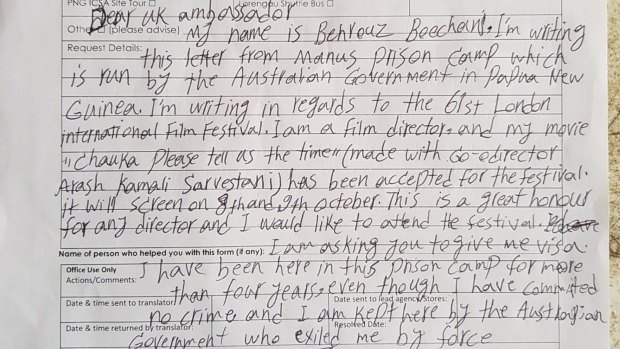 PNG ICSA Site Tour □ Lorengau Shuttle Bus □
Dear UK ambassador
Other □ (please advise) My name is Behrouz Boochani. I'm writing
Request Details: this letter from Manus prison camp which
is run by the Australian Government in Papua New
Guinea. I'm writing in regards to the 61st London
international Film Festival. I am a film director, and my movie
"Chauka Please tell us the time" (made with Co-edirector
Arash Kamali Sarvestani) has been accepted for the festival.
it will screen on 8th and 9th october. This is a great honour
for any director and I would like to attend the festival.
Name of person who helped you with this form (if any): I am asking you to give me visa.
Office Use Only I have been here in this prison camp for more
Actions/Comments: than four years, even though I have committed
Date & time sent to translator: Date sent to lead agency/Stores:
no crime and I am kept here by the Australian
Date & time returned by translator: Resolved Date:
Government who exiled me by force